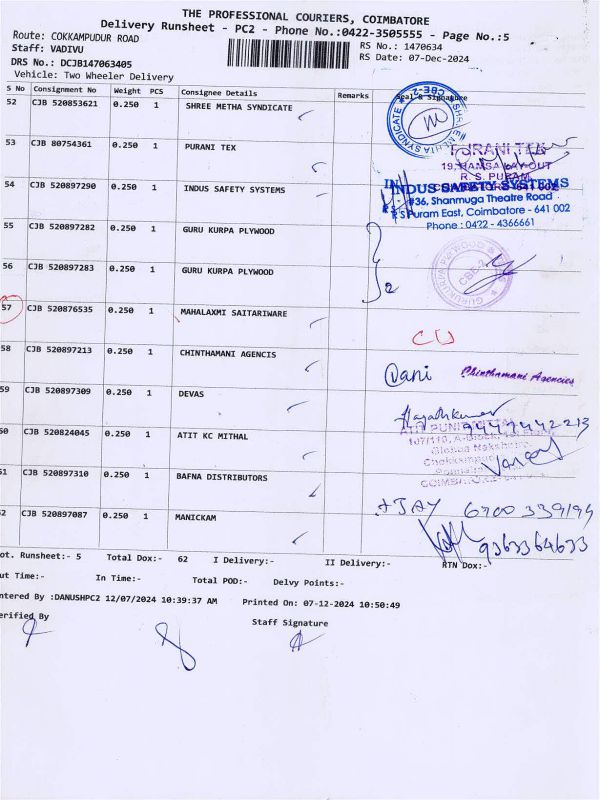 THE PROFESSIONAL COURIERS, COIMBATORE
Delivery Runsheet - PC2 - Phone No.:0422-3505555 - Page No.:5
Route: COKKAMPUDUR ROAD
RS No.: 1470634
Staff: VADIVU
RS Date: 07-Dec-2024
DRS No.: DCJB147063405
Vehicle: Two Wheeler Delivery
S No Consignment No Weight PCS Consignee Details Remarks Seal & Signature
52 CJB 520853621 0.250 1 SHREE METHA SYNDICATE
53 CJB 80754361 0.250 1 PURANI TEX
19, HAMSA LAY-OUT
R. S. PURAM
54 CJB 520897290 0.250 1 INDUS SAFETY SYSTEMS
INDUS SAFETY SYSTEMS
#36, Shanmuga Theatre Road
R S Puram East, Coimbatore - 641 002
Phone : 0422 - 4366661
55 CJB 520897282 0.250 1 GURU KURPA PLYWOOD
56 CJB 520897283 0.250 1 GURU KURPA PLYWOOD
2
CBE-2
57 CJB 520876535 0.250 1 MAHALAXMI SAITARIWARE
58 CJB 520897213 0.250 1 CHINTHAMANI AGENCIS
Chinthamani Agencies
59 CJB 520897309 0.250 1 DEVAS
60 CJB 520824045 0.250 1 ATIT KC MITHAL
61 CJB 520897310 0.250 1 BAFNA DISTRIBUTORS
62 CJB 520897087 0.250 1 MANICKAM
9363364633
ot. Runsheet:- 5 Total Dox:- 62 I Delivery:- II Delivery:- RTN Dox:-
ut Time:- In Time:- Total POD:- Delvy Points:-
ntered By :DANUSHPC2 12/07/2024 10:39:37 AM Printed On: 07-12-2024 10:50:49
erified By Staff Signature